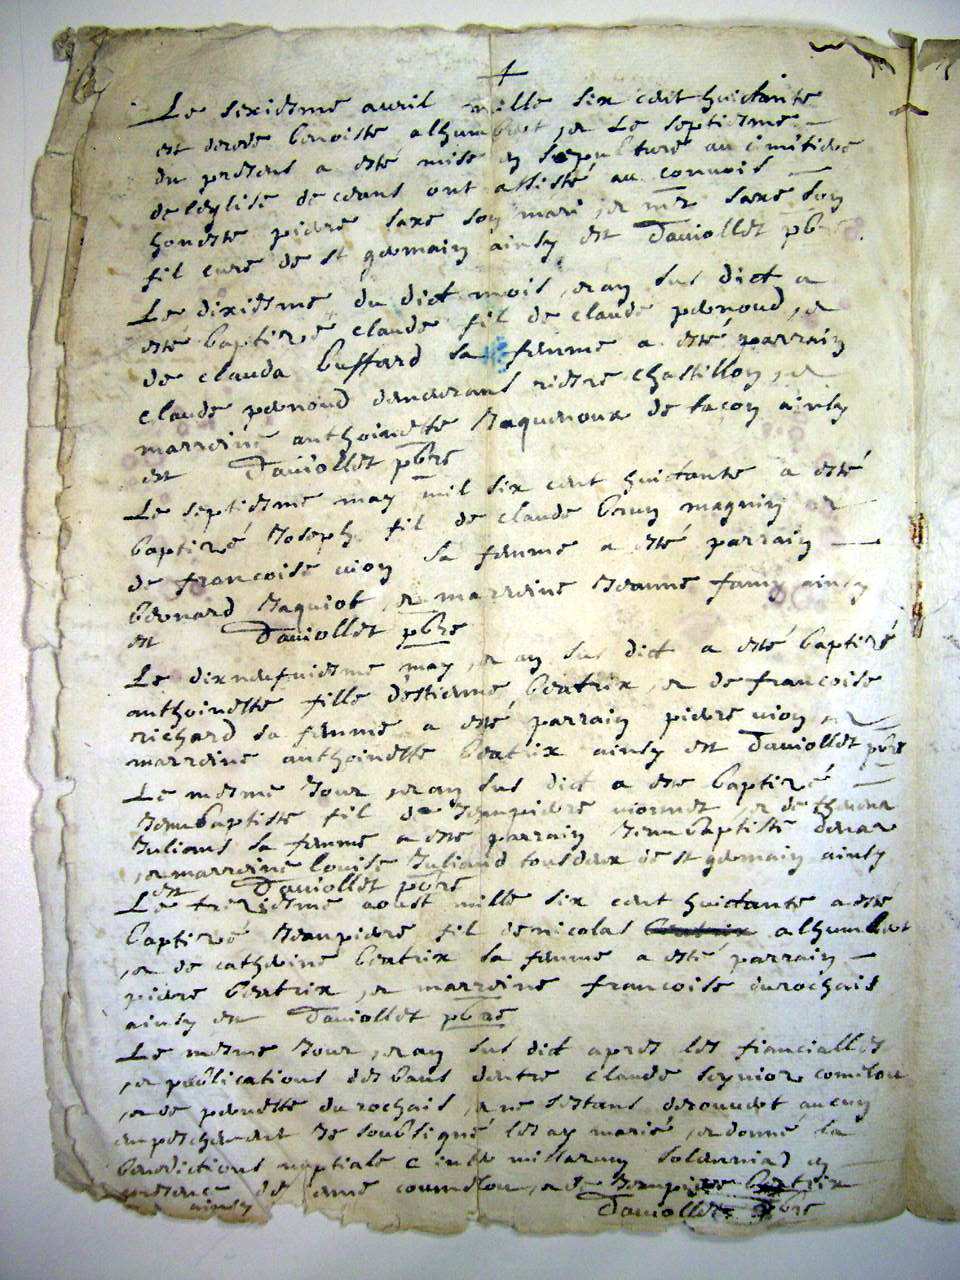 Le sixiesme avril mille six cent huictante
est decede benoiste alhumbert ,et Le septiesme
du present a esté mise en sepulture au cimitiere
de leglise de ceans ont assisté au convois
honeste pierre saxe son mari ,et mre saxe son
fil cure de st germain ainsy est Daviollet pbre
Le dixiesme du dict mois ,et an sus dict a
esté baptizé claude fil de claude pernoud ,et
de clauda buffard sa femme a esté parrain
claude pernoud demeurant riere chastillon ,et
marreine anthoinette Jaquenoux de lacon ainsy
est Daviollet pbre
Le septiesme may mil six cent huictante a esté
baptizé Joseph fil de claude bony magnin et
de francoise vion sa femme a esté parrain
bernard Jaquiot ,et marreine Jeanne famy ainsy
est Daviollet pbre
Le dixneufviesme may ,et an sus dict a esté baptizé
anthoinette fille destienne beatrix ,et de francoise
richard sa femme a esté parrain pierre vion ,et
marreine anthoinette beatrix ainsy est Daviollet pbre
Le mesme Jour ,et an sus dict a este baptizé
Jeanbaptiste fil de Jeanpierre ,et de
Juliand sa femme a este parrain Jeanbaptiste
,et marreine louise Juliand tousdeux de st germain ainsy
est Daviollet pbre
Le treziesme aoust mille six cent huictante a esté
baptizé Jeanpierre fil de nicolas beatrix alhumbert
,et de catherine beatrix sa femme a esté parrain
pierre beatrix ,et marreine francoise durochais
ainsy est Daviollet pbre
Le mesme Jour ,et an sus dict apres les fiancialles
,et publications des bans dentre claude
,et de pernette du rochais ,et ne sestans descouvert aucun
empeschement Je soubsigné les ay marié ,et donné la
benedictions nuptiale inter missarum solemnia en
presence de ,et de Jeanpierre beatrix
ainsy Daviollet pbre